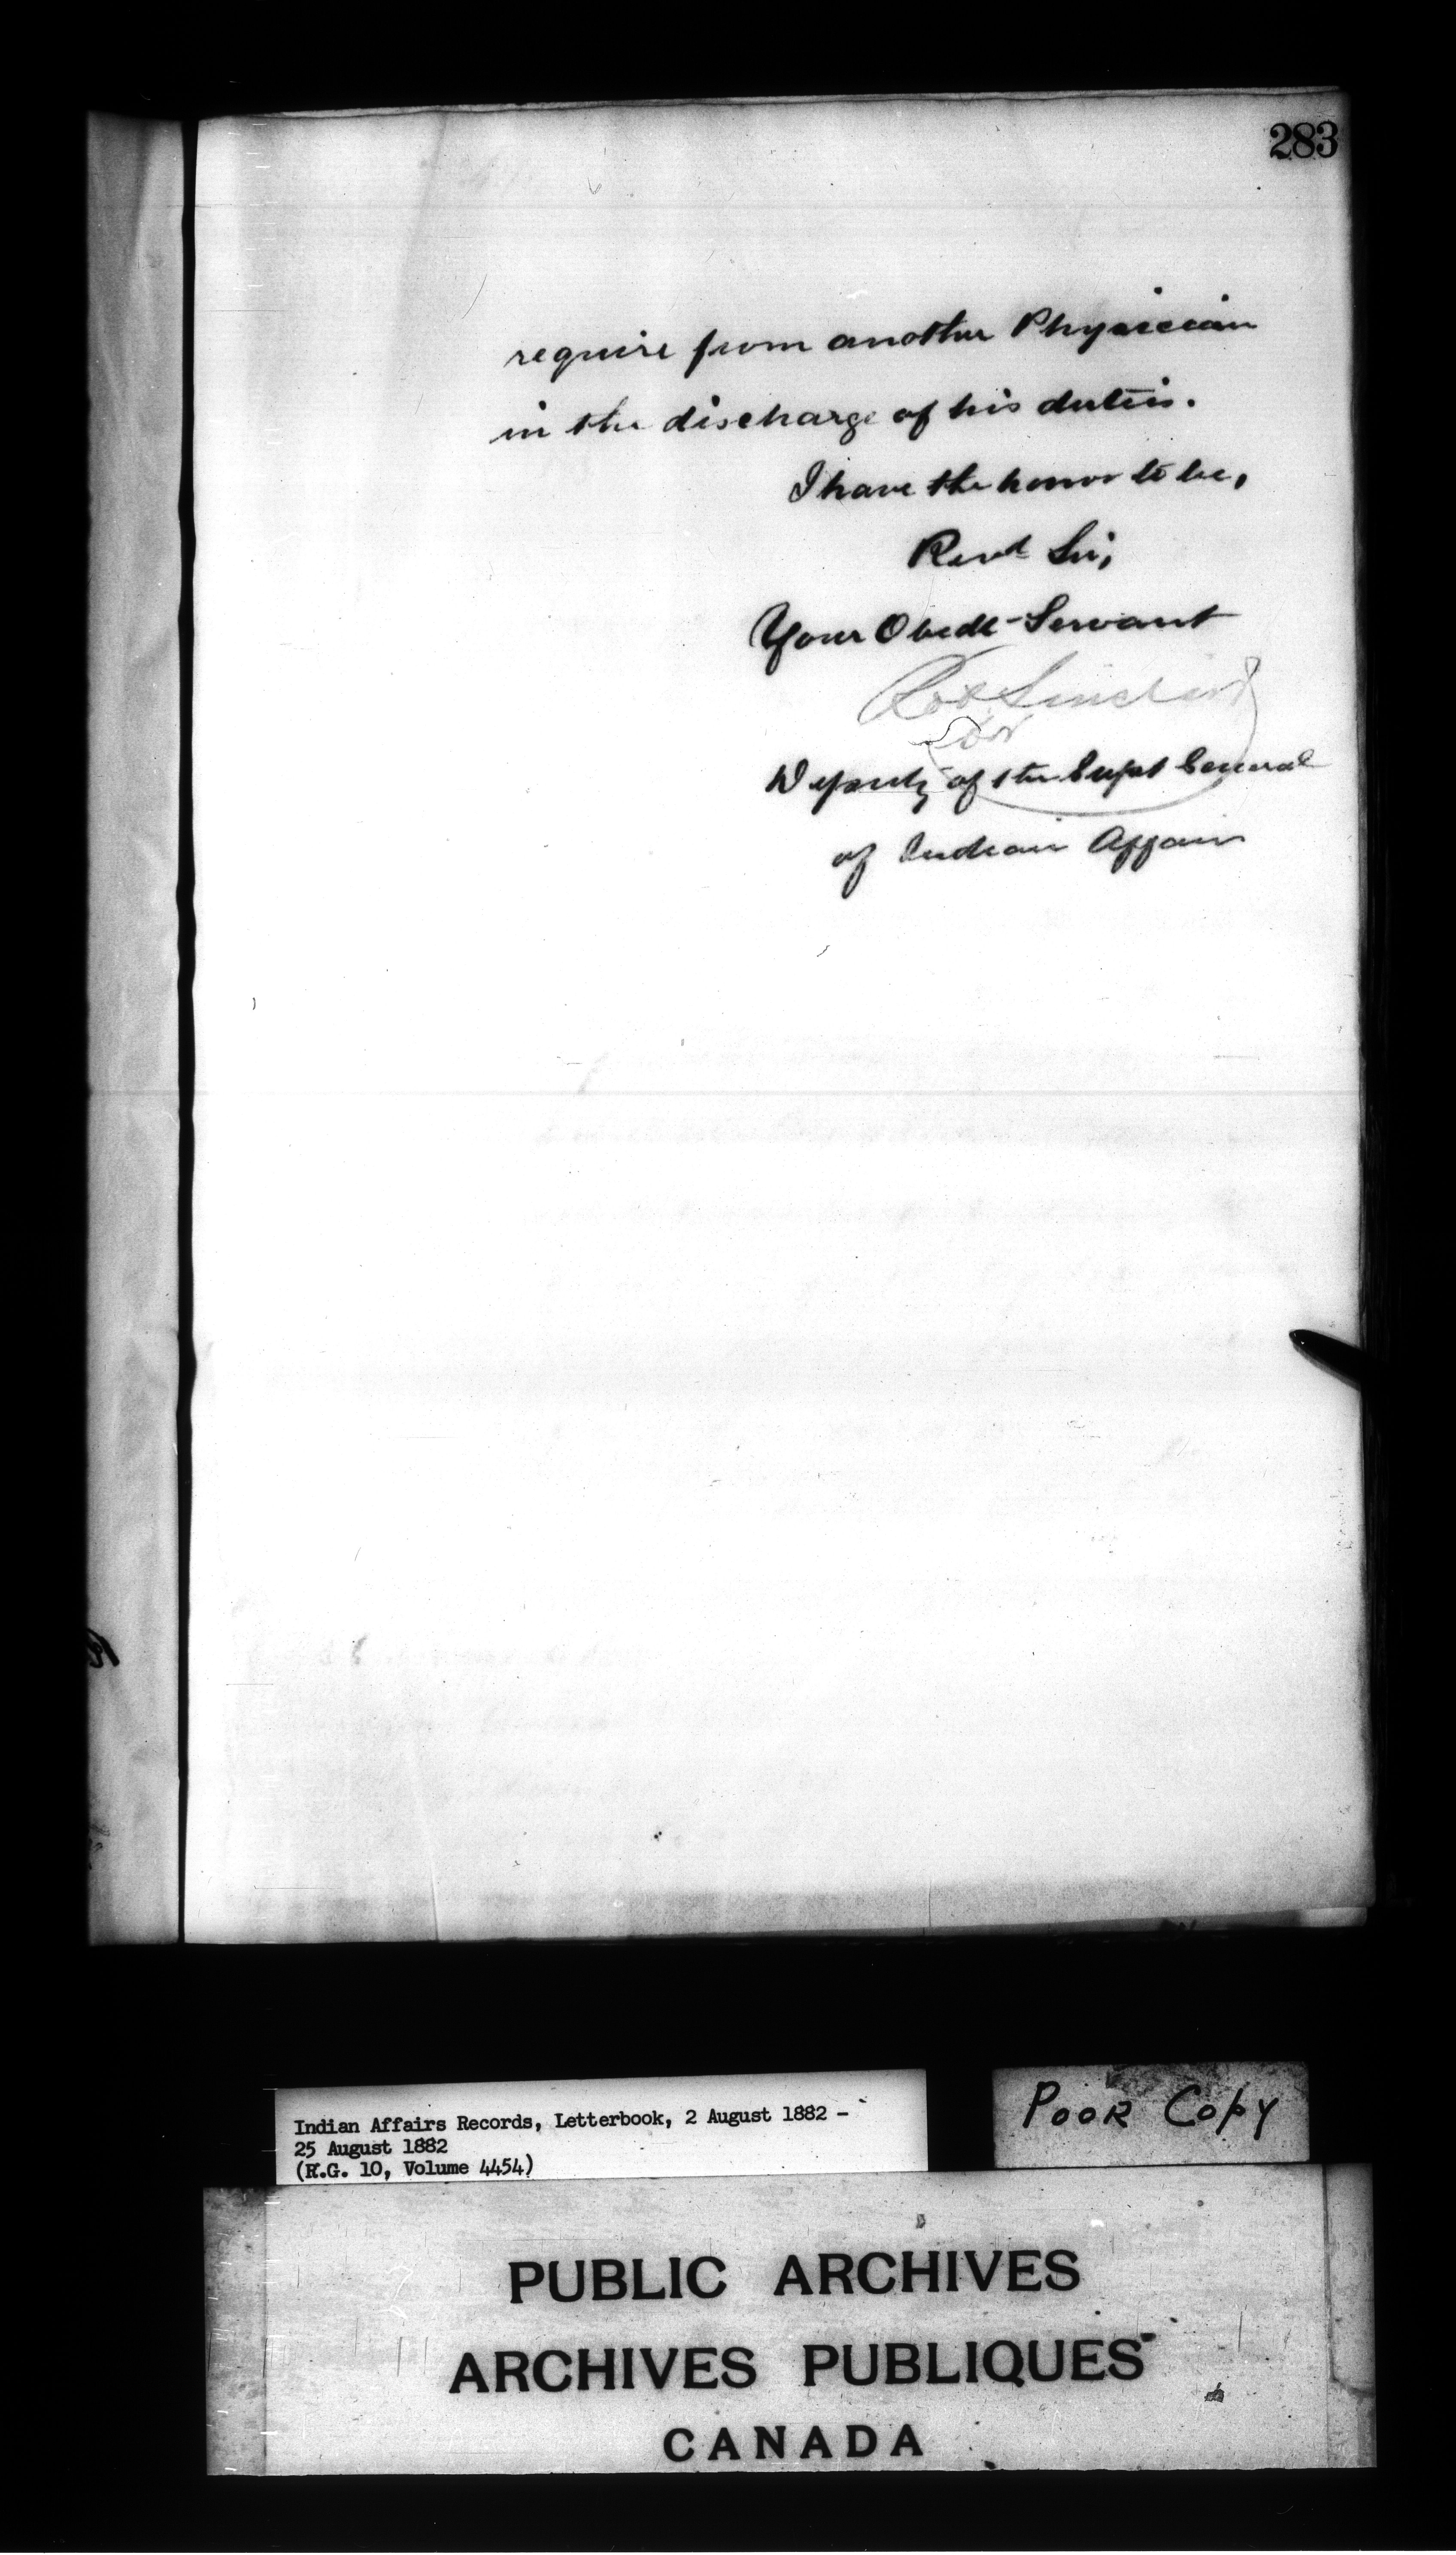 283
require from another Physician
in the discharge of his duties.
I have the honor to be,
Revd Sir,
Your Obedt Servant
Robt Sinclair
for
Deputy of the Supt General
of Indian Affairs
Indian Affairs Records, Letterbook, 2 August 1882 -
25 August 1882
(R.G. 10, Volume 4454)
POOR COPY
PUBLIC ARCHIVES
ARCHIVES PUBLIQUES
CANADA